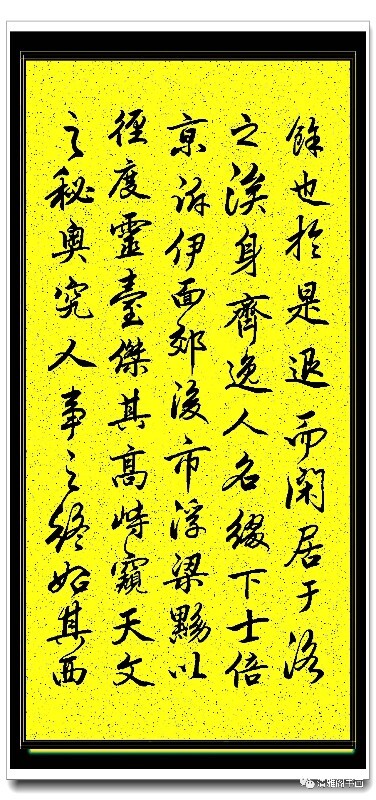 餘也於是退而閑居于洛
之涘身齊逸人名綴下士倍
京泝伊面郊後市浮梁黝以
徑度靈臺傑其高峙窺天文
之秘奧究人事之終始其西